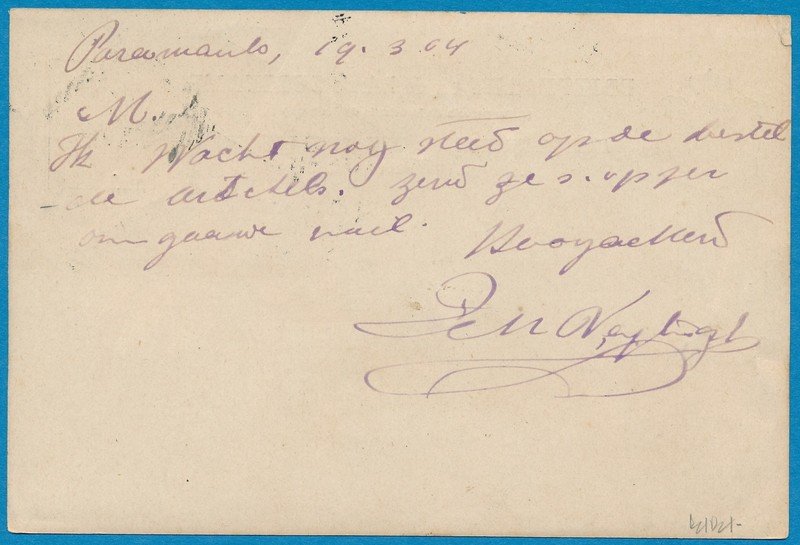 Paramaribo, 19.3.04
M.
Ik Wacht nog steed op de bestel
-de artikels. zend ze s.v.p per
omgaande mail.
Hoogachtend